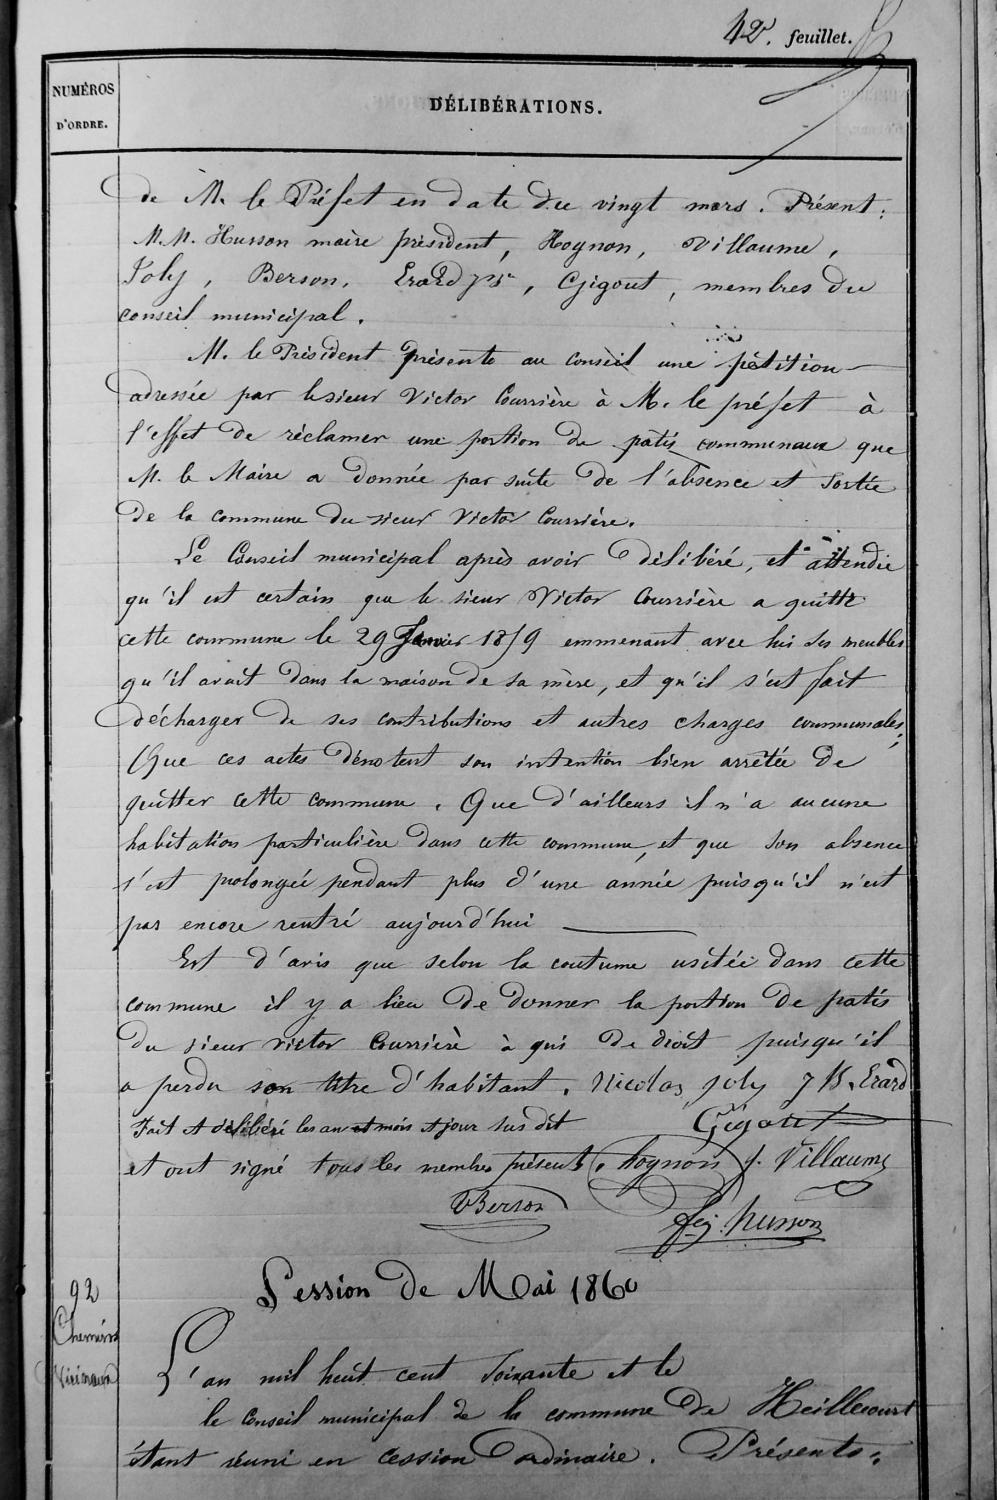 42. feuillet.
NUMÉROS
D'ORDRE.
DÉLIBÉRATIONS.
de M. le Préfet en date du vingt mars. Présent:
M.M. Husson maire président, Hognon, Villaume,
Joly, Berson, Erard JB, Gigout, membres du
conseil municipal.
M. le Président présente au conseil une pétition
adressée par le sieur Victor Courrière à M. le préfet à
l'effet de réclamer une portion de patis communaux que
M. le Maire a donnée par suite de l'absence et sortie
de la commune du sieur Victor Courrière.
Le Conseil municipal après avoir délibéré, et attendu
qu'il est certain que le sieur Victor Courrière a quitté
cette commune le 29 Janvier 1859 emmenant avec lui ses meubles
qu'il avait dans la maison de sa mère, et qu'il s'est fait
décharger de ses contributions et autres charges communales;
Que ces actes dénotent son intention bien arrêtée de
quitter cette commune. Que d'ailleurs il n'a aucune
habitation particulière dans cette commune, et que son absence
s'est prolongée pendant plus d'une année puisqu'il n'est
pas encore rentré aujourd'hui
Est d'avis que selon la coutume usitée dans cette
commune il y a lieu de donner la portion de patis
du sieur Victor Courrière à qui de droit puisqu'il
a perdu son titre d'habitant. Nicolas Joly JB. Erard
Fait et délibéré les an et mois et jour sus dit Gigout
et ont signé tous les membres présents. hognon J. Villaume
Berson
husson
Session de Mai 1860
92
Chemins
Vicinaux
L'an mil huit cent soixante et le
le conseil municipal de la commune de Heillecourt
étant réuni en cession ordinaire. Présents: